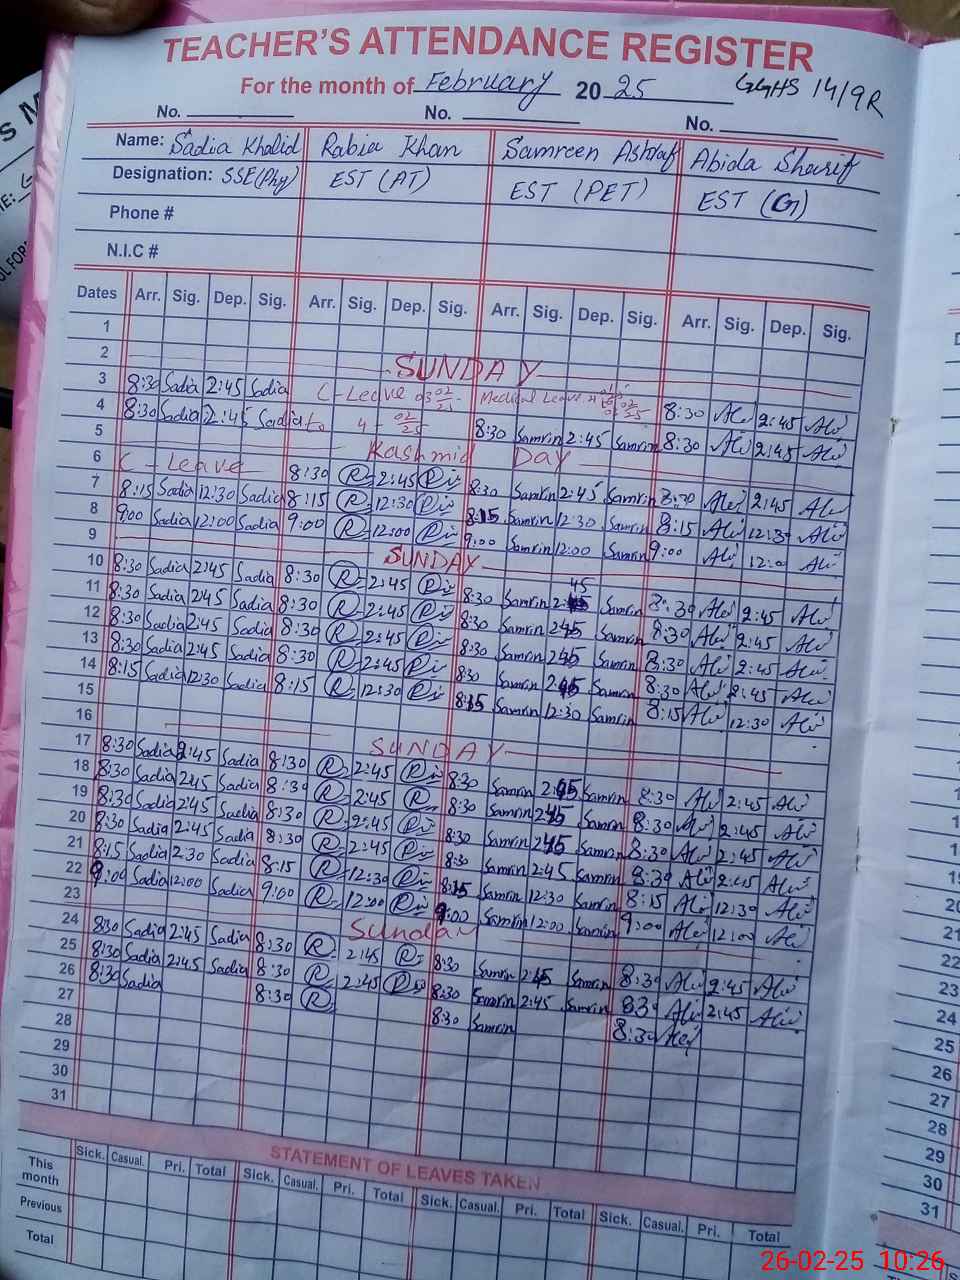 TEACHER'S ATTENDANCE REGISTER
For the month of February 2025 GGHS 14/9R
No. No. No.
Name: Sadia Khalid Rabia Khan Samreen Ashraf Abida Sharif
Designation: SSE(Phy) EST (AT) EST (PET) EST (G)
Phone #
N.I.C #
Dates Arr. Sig. Dep. Sig. Arr. Sig. Dep. Sig. Arr. Sig. Dep. Sig. Arr. Sig. Dep. Sig.
1
2 SUNDAY
3 8:30 Sadia 2:45 Sadia C-Leave 03 02 25 Medical Leave 8:30 2:45
4 8:30 Sadia 2:45 Sadia to 4 - 02 25 8:30 Samrin 2:45 Samrin 8:30 2:45
5 Kashmir Day
6 C - Leave 8:30 2:45 8:30 Samrin 2:45 Samrin 8:30 2:45
7 8:15 Sadia 12:30 Sadia 8:15 12:30 8:15 Samrin 12:30 Samrin 8:15 12:30
8 9:00 Sadia 12:00 Sadia 9:00 12:00 9:00 Samrin 12:00 Samrin 9:00 12:00
9 SUNDAY
10 8:30 Sadia 2:45 Sadia 8:30 2:45 8:30 Samrin 2:45 Samrin 8:30 2:45
11 8:30 Sadia 2:45 Sadia 8:30 2:45 8:30 Samrin 2:45 Samrin 8:30 2:45
12 8:30 Sadia 2:45 Sadia 8:30 2:45 8:30 Samrin 2:45 Samrin 8:30 2:45
13 8:30 Sadia 2:45 Sadia 8:30 2:45 8:30 Samrin 2:45 Samrin 8:30 2:45
14 8:15 Sadia 12:30 Sadia 8:15 12:30 8:15 Samrin 12:30 Samrin 8:15 12:30
15
16 SUNDAY
17 8:30 Sadia 2:45 Sadia 8:30 2:45 8:30 Samrin 2:45 Samrin 8:30 2:45
18 8:30 Sadia 2:45 Sadia 8:30 2:45 8:30 Samrin 2:45 Samrin 8:30 2:45
19 8:30 Sadia 2:45 Sadia 8:30 2:45 8:30 Samrin 2:45 Samrin 8:30 2:45
20 8:30 Sadia 2:45 Sadia 8:30 2:45 8:30 Samrin 2:45 Samrin 8:30 2:45
21 8:15 Sadia 2:30 Sadia 8:15 12:30 8:15 Samrin 12:30 Samrin 8:15 12:30
22 9:00 Sadia 12:00 Sadia 9:00 12:00 9:00 Samrin 12:00 Samrin 9:00 12:00
23 Sunday
24 8:30 Sadia 2:45 Sadia 8:30 2:45 8:30 Samrin 2:45 Samrin 8:30 2:45
25 8:30 Sadia 2:45 Sadia 8:30 2:45 8:30 Samrin 2:45 Samrin 8:30 2:45
26 8:30 Sadia 8:30 8:30 Samrin 8:30
27
28
29
30
31
STATEMENT OF LEAVES TAKEN
Sick. Casual. Pri. Total Sick. Casual. Pri. Total Sick. Casual. Pri. Total Sick. Casual. Pri. Total
This month
Previous
Total
26-02-25 10:26